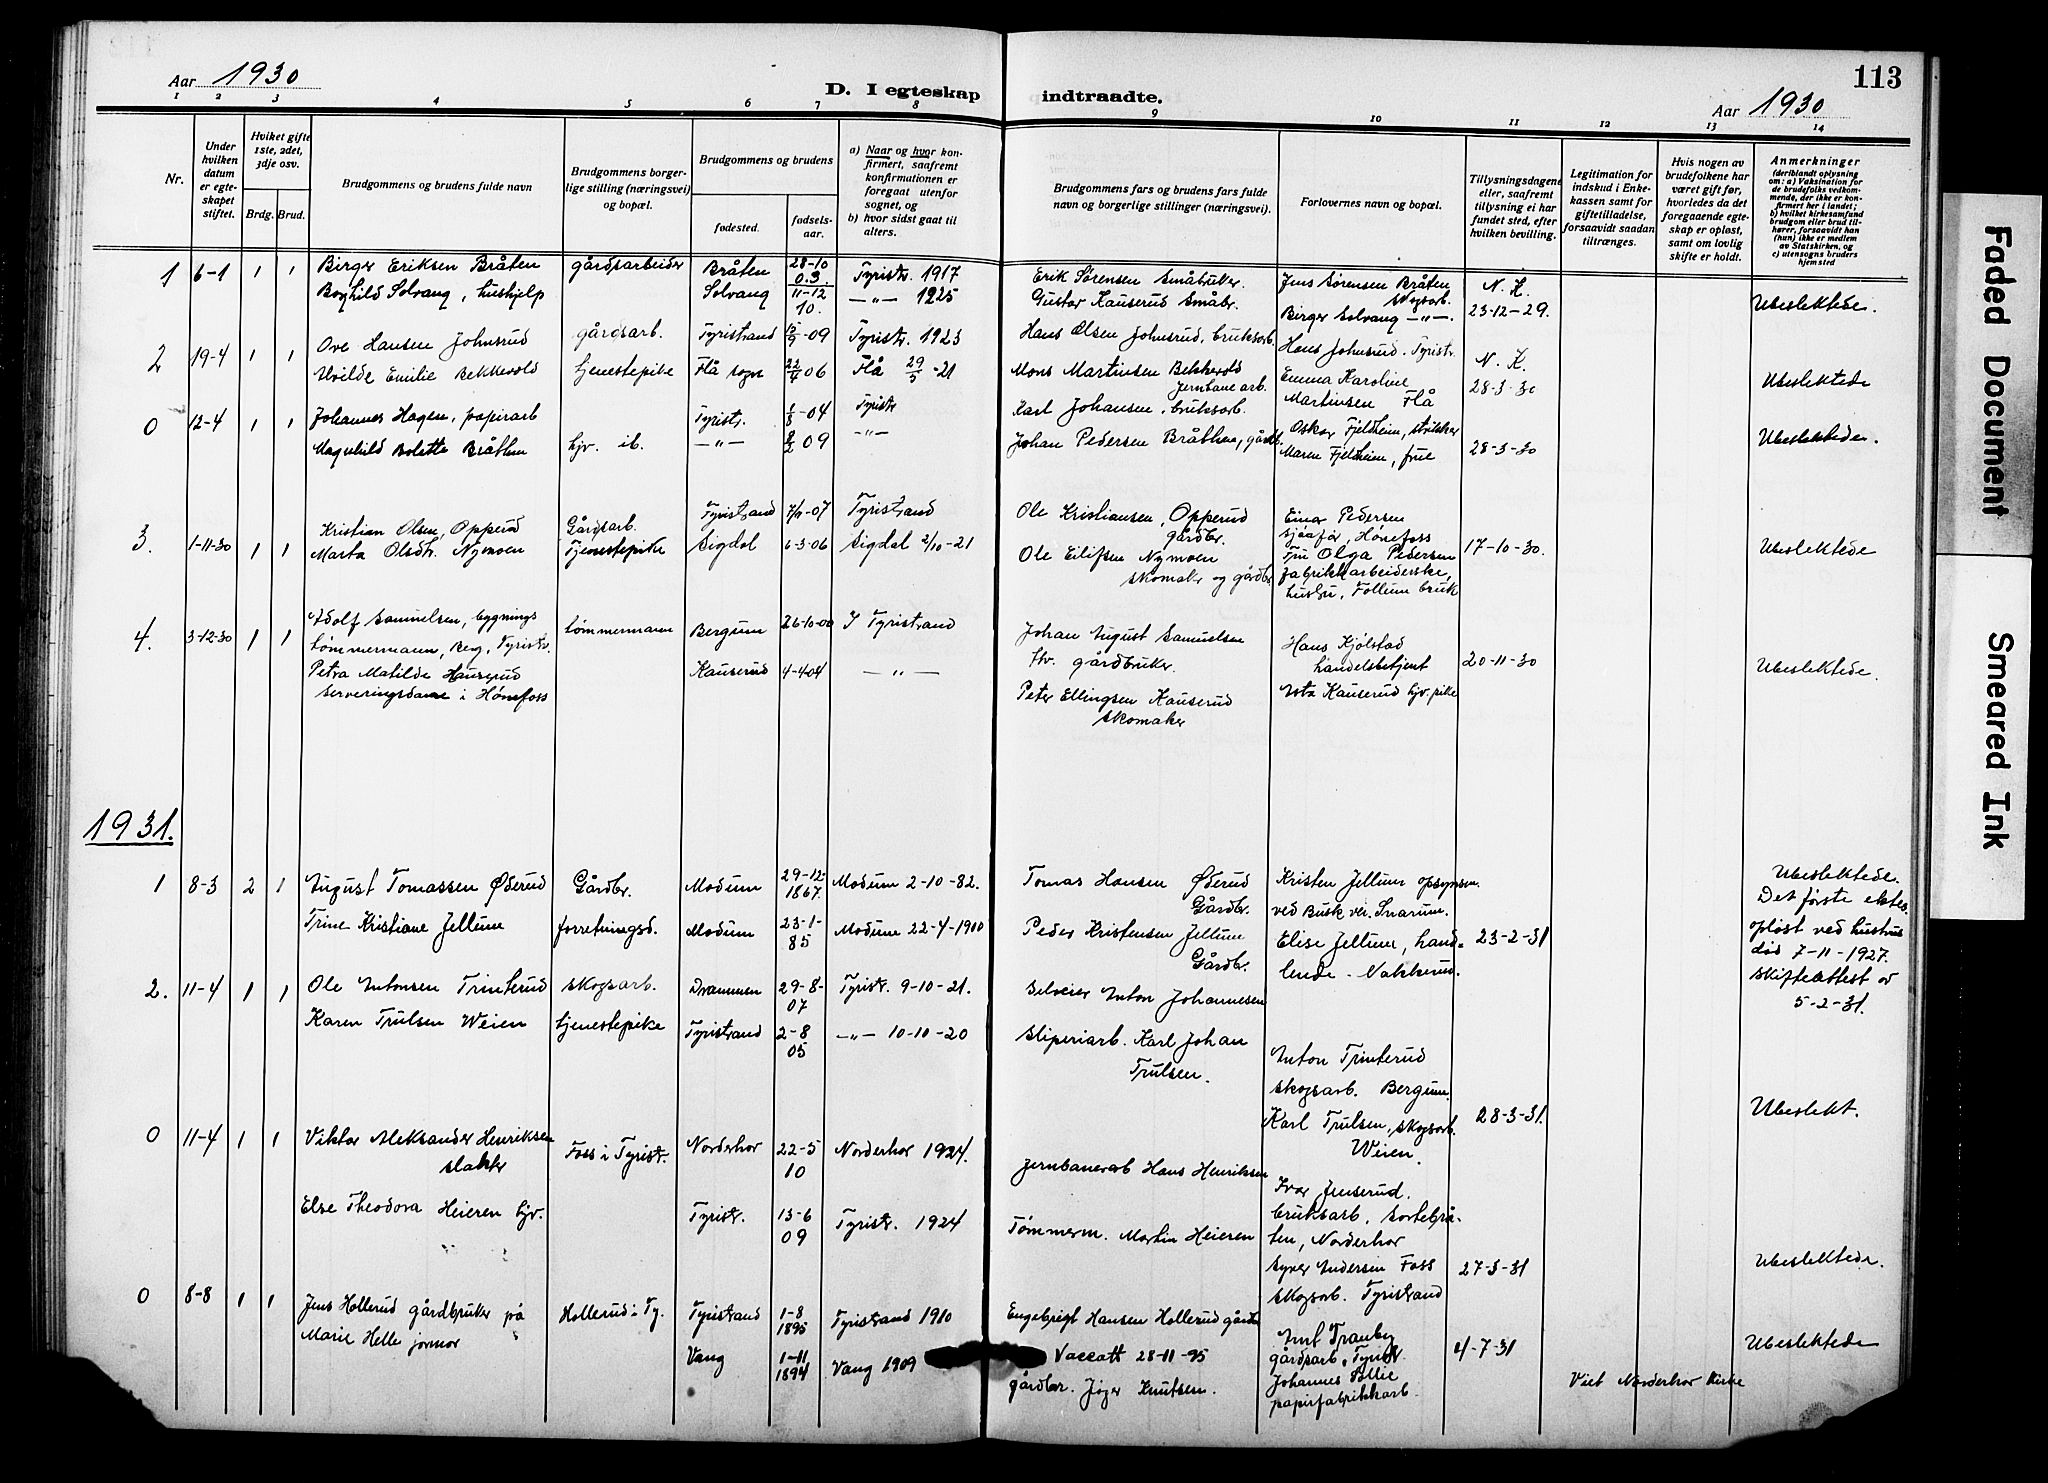 Aar 1930
D. I egteskap indtraadte.
113
Aar 1930
1 2 3 4 5 6 7 8 9 10 11 12 13 14
Nr.
Under hvilken datum er egteskapet stiftet.
Hviket gifte 1ste, 2det, 3dje osv.
Brdg. Brud.
Brudgommens og brudens fulde navn
Brudgommens borgerlige stilling (næringsvei) og bopæl.
Brudgommens og brudens
fødested. fødselsaar.
a) Naar og hvor konfirmert, saafremt konfirmationen er foregaat utenfor sognet, og
b) hvor sidst gaat til alters.
Brudgommens fars og brudens fars fulde navn og borgerlige stillinger (næringsvei).
Forlovernes navn og bopæl.
Tillysningsdagene eller, saafremt tillysning ei har fundet sted, efter hvilken bevilling.
Legitimation for indskud i Enkekassen samt for giftetilladelse, forsaavidt saadan tiltrænges.
Hvis nogen av brudefolkene har været gift før, hvorledes da det foregaaende egteskap er opløst, samt om lovlig skifte er holdt.
Anmerkninger
(deriblandt oplysning om: a) Vaksination for de brudefolks vedkommende, der ikke er konfirmert her i landet; b) hvilket kirkesamfund brudgom eller brud tilhører, forsaavidt han (hun) ikke er medlem av Statskirken, og c) utensogns bruders hjemsted
1 6-1 1 1 Birger Eriksen Bråten gårdsarbeider Bråten 28-10 03 Tyristr. 1917 Erik Sørensen Småbruker Jens Sørensen Bråten skogsarb. N. K.
Borghild Solvang, hushjelp Solvang 11-12 10. —"— 1925 Gustav Kauserud Småbr. Birger Solvang —"— 23-12-29. Ubeslektede.
2 19-4 1 1 Ove Hansen Johnsrud gårdsarb. Tyristrand 09 Tyristr. 1923 Hans Olsen Johnsrud, bruksarb. Hans Johnsrud. Tyristr. N. K.
Hvilde Emilie Bekkevold tjenestepike Flå sogn 22/4 06 Flå 29/5-21 Mons Martinsen Bekkevold Jernbanearb. Emma Karoline Martinsen Flå 28-3-30 Ubeslektede
0 12-4 1 1 Johannes Hagen, papirarb Tyristr. -04 Tyristr Karl Johansen, bruksarb. Oskar Fjeldheim,
Magnhild Bolette Bråthen hjv. ib. —"— 09 —"— Johan Pedersen Bråthen, gårdb. Maren Fjeldheim, frue 28-3-30 Ubeslektede.
3. 1-11-30 1 1 Kristian Olsen, Opperud Gårdsarb. Tyristrand -07 Tyristrand Ole Kristiansen, Opperud gårdbr. Einar Pedersen sjåfør, Hønefoss
Marta Olsdtr. Nymoen Tjenestepike Sigdal 6-3-06 Sigdal 2/10-21 Ole Eilifsen Nymoen skomaker og gårdbr. Fru Olga Pedersen fabrikkarbeiderske, hustru, Follum bruk 17-10-30. Ubeslektede
4. 3-12-30 1 1 Adolf Samuelsen, bygnings tømmermann, Berg, Tyristr. tømmermann Bergum 26-10-00 I Tyristrand Johan August Samuelsen gårdbruker. Hans Kjølstad handelsbetjent
Petra Matilde Hauserud serveringsdame i Hønefoss Kauserud 4-4-04 —"— Peter Ellingsen Kauserud skomaker Asta Kauserud hjv. pike 20-11-30 Ubeslektede.
1931.
1 8-3 2 1 August Tomassen Øderud Gårdbr. Modum 29-12 1867. Modum 2-10-82. Tomas Hansen Øderud Gårdbr. Kristen Jellum opsynsm. ved Busk ver. Snarum.
Trine Kristiane Jellum forretningsd. Modum 23-1-85 Modum 22-4-1900 Peder Kristensen Jellum Gårdbr. Elise Jellum, handlende - Nakkerud. 23-2-31
Ubeslektede.
Det første ektes.
opløst ved hustrus
død 7-11-1927.
Skifteattest av
5-2-31.
2. 11-4 1 1 Ole Antonsen Trinterud skogsarb. Drammen 29-8-07 Tyristr. 9-10-21. Selveier Anton Johannesen Anton Trinterud skogsarb. Bergum.
Karen Trulsen Weien tjenestepike Tyristrand 2-8 05 —"— 10-10-20 Sliperiarb. Karl Johan Trulsen. Karl Trulsen, skogsarb. Weien 28-3-31. Ubeslekt.
0 11-4 1 1 Viktor Aleksander Henriksen slakter Foss i Tyristr. Norderhov 22-5 10 Norderhov 1924. Jernbanearb Hans Henriksen Ivar Jenserud. bruksarb. Sortebråten, Norderhov
Else Theodora Heieren hjv. Tyristr. 13-6 09 Tyristr. 1924 Tømmerm. Martin Heieren Syver Andersen Foss skogsarb. Tyristrand 27-3-31 Ubeslektede.
0 8-8 1 1 Jens Hollerud gårdbruker på Hollerud i Ty. Tyristrand 1-8 1895 Tyristrand 1910 Engebrigt Hansen Hollerud gårdbr Tranby gårdsarb, Tyristr.
Marie Helle jormor Vang 1-11 1894 Vang 1909 Vaccatt 28-11-95 gårdbr. Knutsen. Johannes Sollie papirfabrikkarb. 4-7-31 Viet Norderhov Kirke Ubeslektede
Faded Document
Smeared Ink